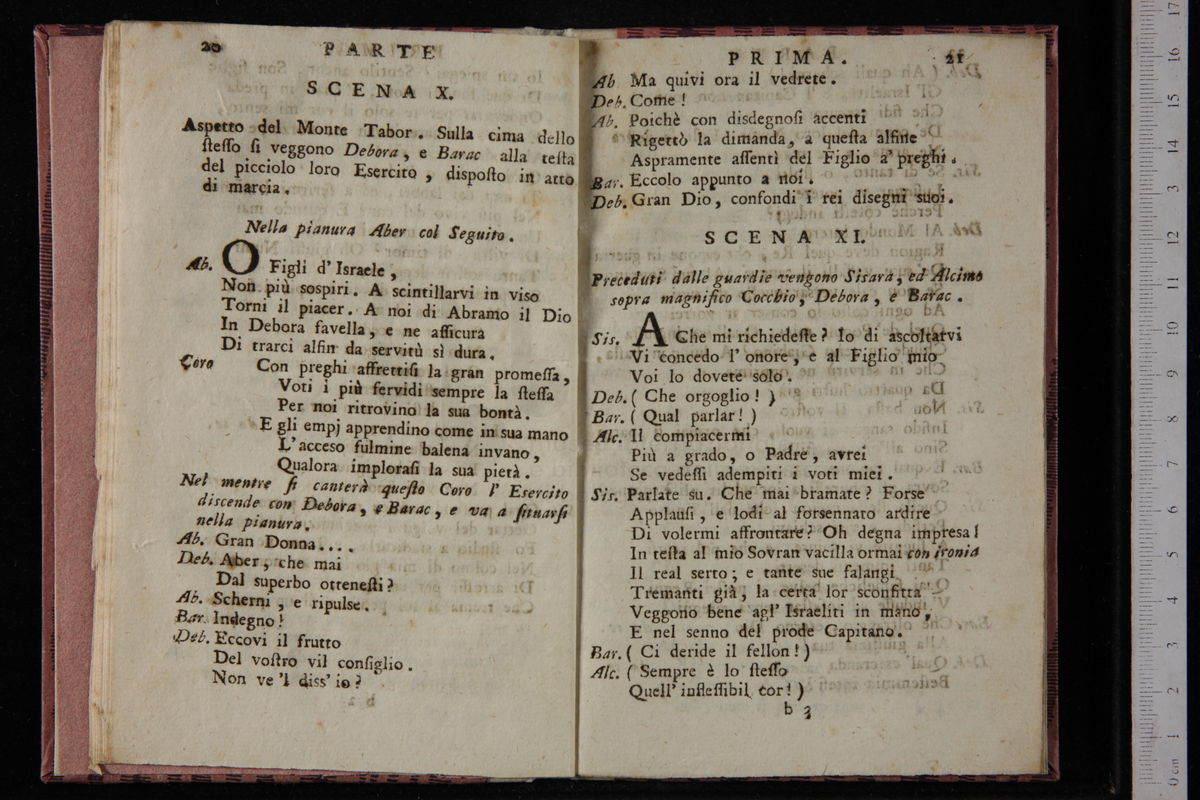 20 PARTE
SCENA X.
Aspetto del Monte Tabor. Sulla cima dello
ſteſſo ſi veggono Debora, e Barac alla teſta
del picciolo loro Esercito, diſpoſto in atto
di marcia.
Nella pianura Aber col Seguito.
Ab. O Figli d' Israele,
Non più sospiri. A scintillarvi in viso
Torni il piacer. A noi di Abramo il Dio
In Debora favella, e ne aſſicura
Di trarci alfin da servitù sì dura.
Coro Con preghi affrettiſi la gran promeſſa,
Voti i più fervidi sempre la ſteſſa
Per noi ritrovino la sua bontà.
E gli empj apprendino come in sua mano
L'acceso fulmine balena invano,
Qualora imploraſi la sua pietà.
Nel mentre ſi canterà queſto Coro l' Esercito
discende con Debora, e Barac, e va a ſituarſi
nella pianura.
Ab. Gran Donna....
Deb. Aber, che mai
Dal superbo otteneſti?
Ab. Scherni, e ripulse.
Bar. Indegno!
Deb. Eccovi il frutto
Del voſtro vil conſiglio.
Non ve 'l diss' io?
PRIMA. 21
Ab Ma quivi ora il vedrete.
Deb. Come!
Ab. Poichè con disdegnoſi accenti
Rigettò la dimanda, a queſta alfine
Aspramente aſſentì del Figlio a' preghi.
Bar. Eccolo appunto a noi.
Deb. Gran Dio, confondi i rei disegni suoi.
SCENA XI.
Preceduti dalle guardie vengono Sisara, ed Alcimo
sopra magnifico Cocchio, Debora, e Barac.
Sis. A Che mi richiedeſte? Io di ascoltarvi
Vi concedo l' onore, e al Figlio mio
Voi lo dovete solo.
Deb. ( Che orgoglio! )
Bar. ( Qual parlar! )
Alc. Il compiacermi
Più a grado, o Padre, avrei
Se vedeſſi adempiti i voti miei.
Sis. Parlate su. Che mai bramate? Forse
Applauſi, e lodi al forsennato ardire
Di volermi affrontare? Oh degna impresa!
In teſta al mio Sovran vacilla ormai con ironia
Il real serto; e tante sue falangi
Tremanti già, la certa lor sconfitta
Veggono bene agl' Israeliti in mano,
E nel senno del prode Capitano.
Bar. ( Ci deride il fellon! )
Alc. ( Sempre è lo ſteſſo
Quell' infleſſibil cor! )
b 3